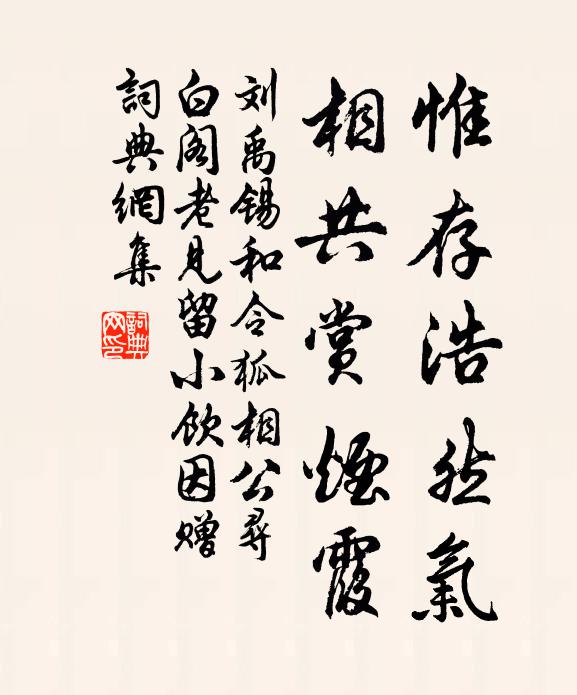 惟存浩然氣
相共賞煙霞
刘禹锡和令狐相公尋
白阁老見留小飲因赠
詞典網集
詞典
网印